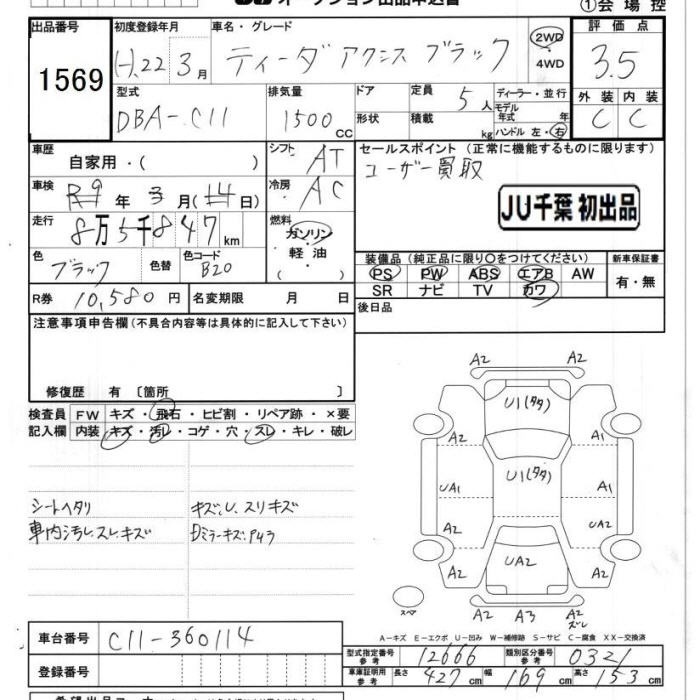 ①会場控
出品番号
1569
初度登録年月
H.22 3月
車名・グレード
ティーダ アクシス ブラック
2WD
・
4WD
評価点
3.5
外装 内装
C C
型式
DBA-C11
排気量
1500 CC
ドア
形状
定員 5人
積載 kg
ディーラー・並行
モデル
年式 年
ハンドル 左・右
車歴
自家用・( )
シフト AT
セールスポイント (正常に機能するものに限ります)
ユーザー買取
JU千葉 初出品
車検 R9年 3月(14日)
冷房 AC
走行 8万5千847km
燃料
ガソリン
軽油
・( )
色 ブラック 色替 色コード B20
装備品 (純正品に限り○をつけてください) 新車保証書
PS PW ABS エアB AW 有・無
SR ナビ TV カワ
R券 10,580円 名変期限 月 日
後日品
注意事項申告欄 (不具合内容等は具体的に記入して下さい)
修復歴 有 〔箇所 〕
検査員 FW キズ・飛石・ヒビ割・リペア跡・×要
記入欄 内装 キズ・汚レ・コゲ・穴・スレ・キレ・破レ
シートヘタリ キズ、U、スリキズ
車内汚レ、スレ、キズ
A2 A2
U1(タタ)
A2 A1
UA1 U1(タタ) A1
A2 UA2
UA2
A2 A2
A2 A3 A2
スレ
スペア
A-キズ E-エクボ U-凹み W-補修跡 S-サビ C-腐食 XX-交換済
車台番号 C11-360114
登録番号
型式指定番号 参考 12666 類別区分番号 参考 0321
車庫証明用 参考 長さ 427 cm 幅 169 cm 高さ 153 cm